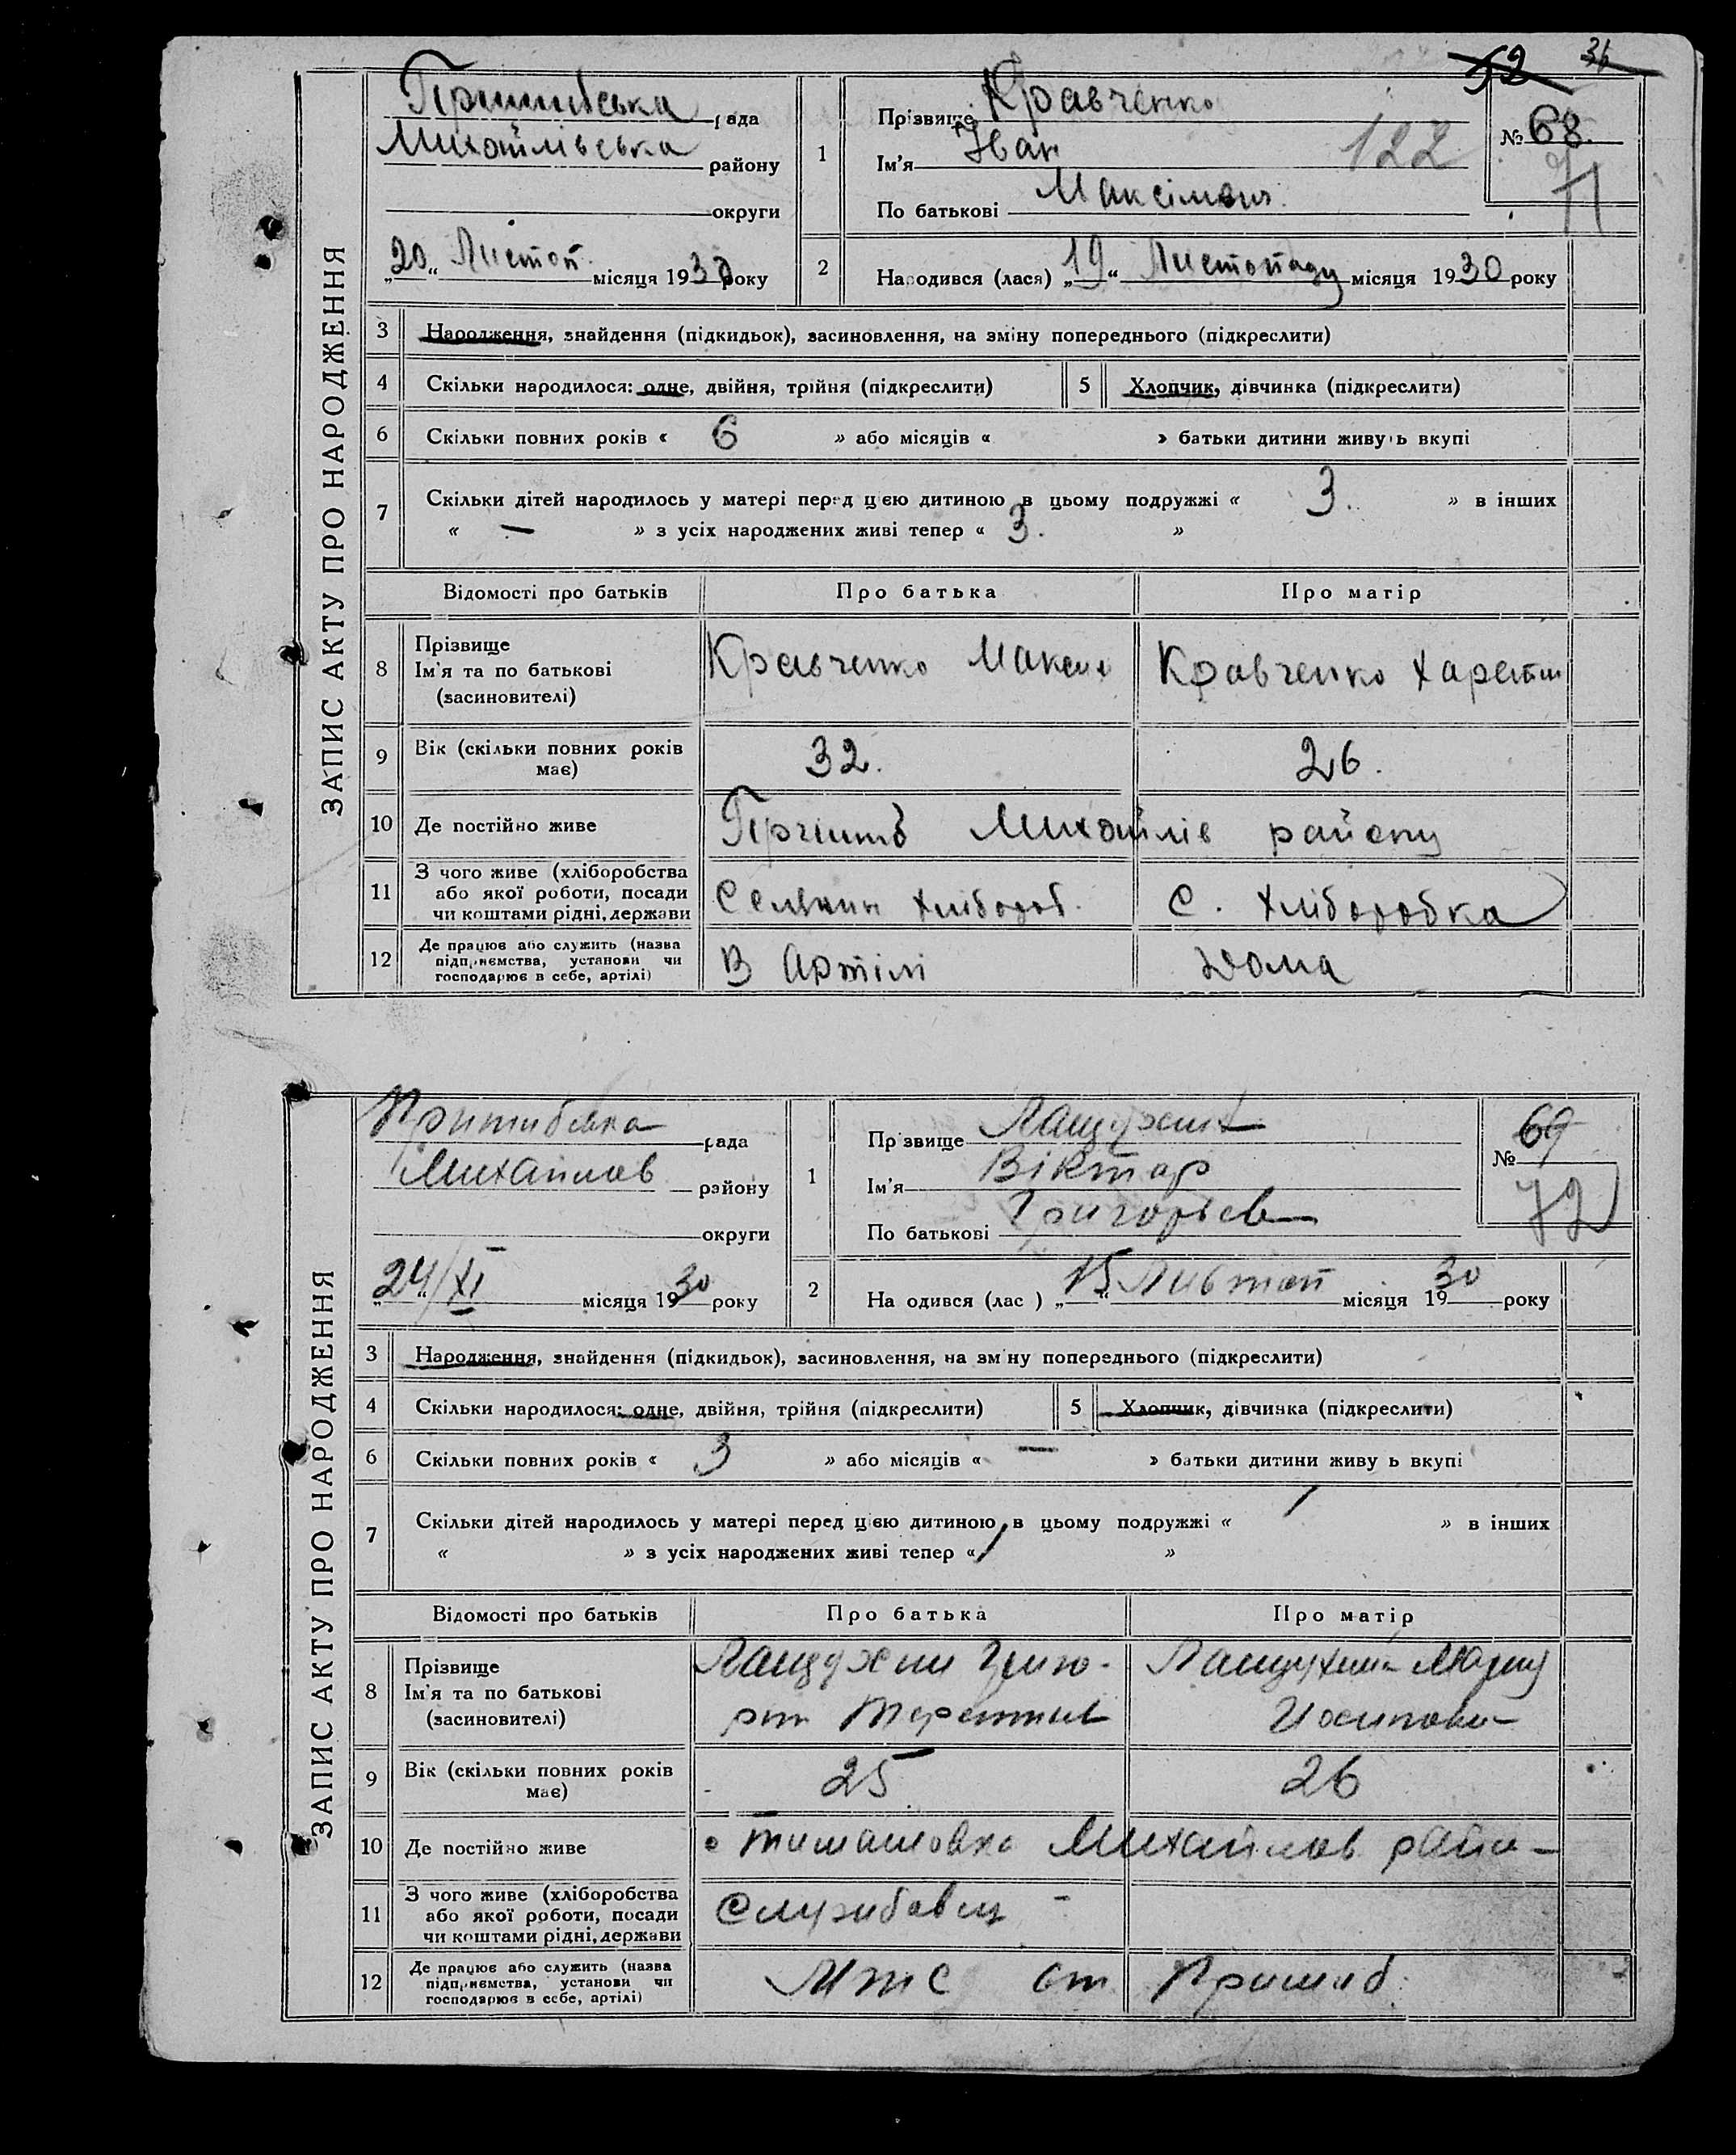 52 36
ЗАПИС АКТУ ПРО НАРОДЖЕННЯ
Пришибська рада
Михайлівська району
округи
„20“ Листоп. місяця 1930 року
1
Прізвище Кравченко
Ім'я Іван 122
По батькові Максімович
№ 68.
71
2
Народився (лася) „19“ Листопаду місяця 1930 року
3 Народження, знайдення (підкидьок), засиновлення, на зміну попереднього (підкреслити)
4 Скільки народилося: одне, двійня, трійня (підкреслити) 5 Хлопчик, дівчинка (підкреслити)
6 Скільки повних років « 6 » або місяців « » батьки дитини живуть вкупі
7 Скільки дітей народилось у матері перед цією дитиною в цьому подружжі « 3. » в інших
« — » з усіх народжених живі тепер « 3. »
Відомості про батьків Про батька Про матір
8 Прізвище
Ім'я та по батькові
(засиновителі)
Кравченко Максим Кравченко
9 Вік (скільки повних років має) 32. 26.
10 Де постійно живе Пришиб Михайлів району
11 З чого живе (хліборобства
або якої роботи, посади
чи коштами рідні, держави
Селянин хлібороб. С. хліборобка
12 Де працює або служить (назва
підприємства, установи чи
господарює в себе, артілі)
В Артілі Дома
ЗАПИС АКТУ ПРО НАРОДЖЕННЯ
Пришибська рада
Михайлов району
округи
24/XI місяця 1930 року
1
Прізвище
Ім'я Віктор
По батькові Григорьев
№ 69
72
2
На одився (лас ) „15“ Листоп місяця 1930 року
3 Народження, знайдення (підкидьок), засиновлення, на зм ну попереднього (підкреслити)
4 Скільки народилося: одне, двійня, трійня (підкреслити) 5 Хлопчик, дівчинка (підкреслити)
6 Скільки повних років « 3 » або місяців « — » батьки дитини живу ь вкупі
7 Скільки дітей народилось у матері перед цією дитиною в цьому подружжі « 1 » в інших
« » з усіх народжених живі тепер « 1 »
Відомості про батьків Про батька Про матір
8 Прізвище
Ім'я та по батькові
(засиновителі)
9 Вік (скільки повних років має) 25 26
10 Де постійно живе с Тимашовка Михайлов райо-
11 З чого живе (хліборобства
або якої роботи, посади
чи коштами рідні, держави
Службовец -
12 Де працює або служить (назва
підприємства, установи чи
господарює в себе, артілі)
МТС ст Пришиб.